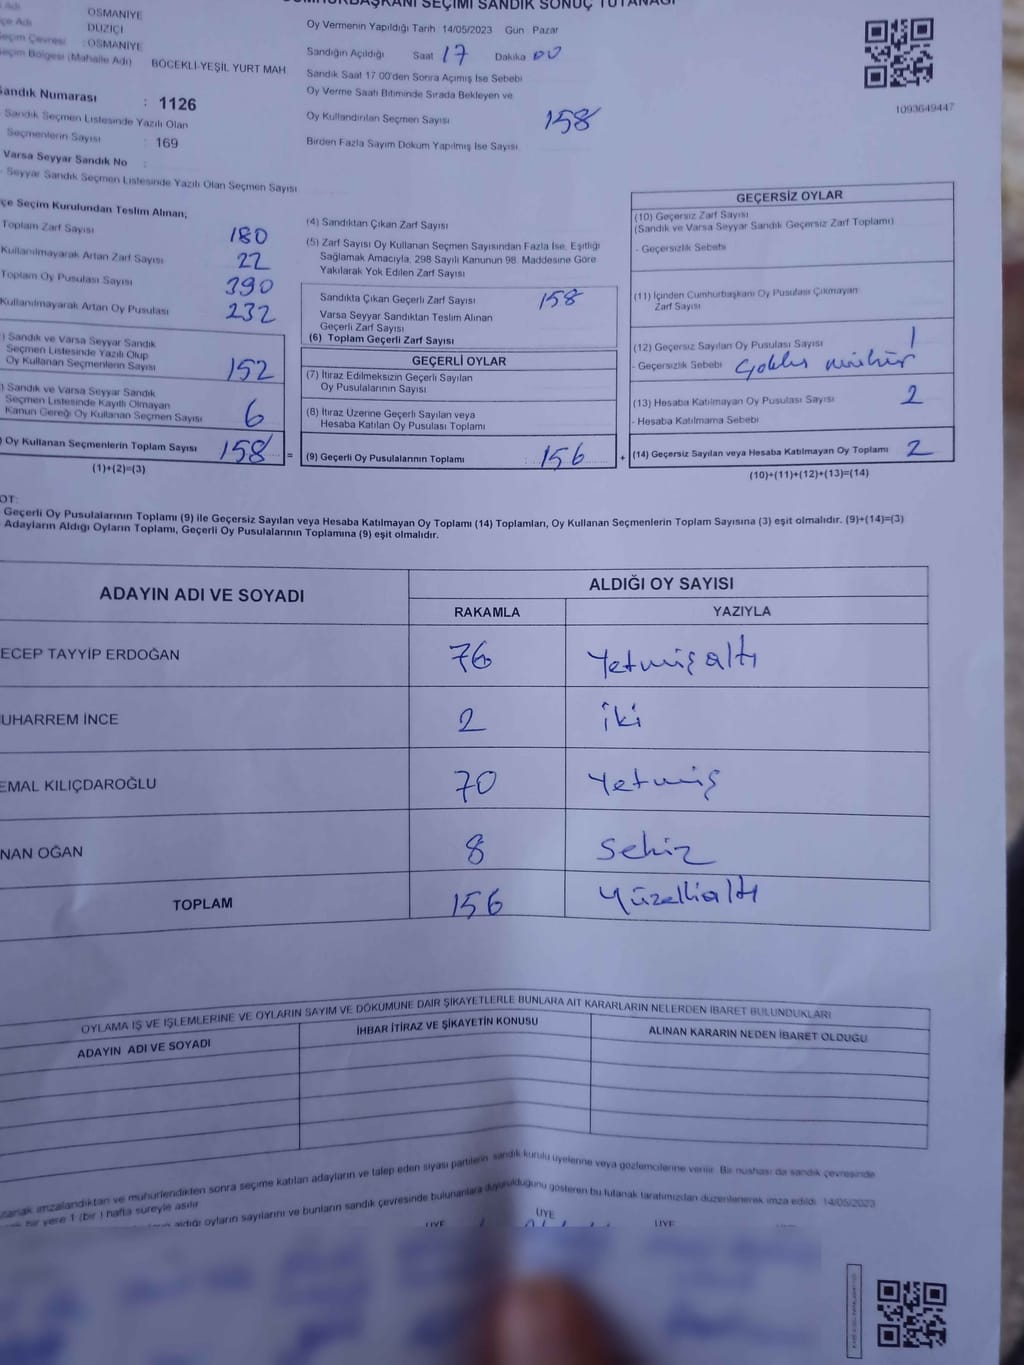 SEÇİMİ SANDIK SONUÇ TUTANAĞI
OSMANİYE
çe Adı DÜZİÇİ
eçim Çevresi : OSMANİYE
eçim Bölgesi (Mahalle Adı) BÖCEKLİ-YEŞİL YURT MAH
Oy Vermenin Yapıldığı Tarih 14/05/2023 Gün Pazar
Sandığın Açıldığı Saat 17 Dakika 00
Sandık Saat 17 00'den Sonra Açılmış İse Sebebi
Oy Verme Saati Bitiminde Sırada Bekleyen ve
Oy Kullandırılan Seçmen Sayısı 158
Birden Fazla Sayım Döküm Yapılmış İse Sayısı
1093649447
andık Numarası : 1126
Sandık Seçmen Listesinde Yazılı Olan
Seçmenlerin Sayısı : 169
Varsa Seyyar Sandık No :
Seyyar Sandık Seçmen Listesinde Yazılı Olan Seçmen Sayısı
çe Seçim Kurulundan Teslim Alınan;
Toplam Zarf Sayısı 180
Kullanılmayarak Artan Zarf Sayısı 22
Toplam Oy Pusulası Sayısı 390
Kullanılmayarak Artan Oy Pusulası 232
) Sandık ve Varsa Seyyar Sandık
Seçmen Listesinde Yazılı Olup
Oy Kullanan Seçmenlerin Sayısı 152
) Sandık ve Varsa Seyyar Sandık
Seçmen Listesinde Kayıtlı Olmayan
Kanun Gereği Oy Kullanan Seçmen Sayısı 6
) Oy Kullanan Seçmenlerin Toplam Sayısı 158 =
(1)+(2)=(3)
(4) Sandıktan Çıkan Zarf Sayısı
(5) Zarf Sayısı Oy Kullanan Seçmen Sayısından Fazla İse, Eşitliği
Sağlamak Amacıyla, 298 Sayılı Kanunun 98. Maddesine Göre
Yakılarak Yok Edilen Zarf Sayısı
Sandıkta Çıkan Geçerli Zarf Sayısı 158
Varsa Seyyar Sandıktan Teslim Alınan
Geçerli Zarf Sayısı
(6) Toplam Geçerli Zarf Sayısı
GEÇERLİ OYLAR
(7) İtiraz Edilmeksizin Geçerli Sayılan
Oy Pusulalarının Sayısı
(8) İtiraz Üzerine Geçerli Sayılan veya
Hesaba Katılan Oy Pusulası Toplamı
(9) Geçerli Oy Pusulalarının Toplamı : 156 +
GEÇERSİZ OYLAR
(10) Geçersiz Zarf Sayısı
(Sandık ve Varsa Seyyar Sandık Geçersiz Zarf Toplamı)
- Geçersizlik Sebebi
(11) İçinden Cumhurbaşkanı Oy Pusulası Çıkmayan
Zarf Sayısı
(12) Geçersiz Sayılan Oy Pusulası Sayısı 1
- Geçersizlik Sebebi mühür
(13) Hesaba Katılmayan Oy Pusulası Sayısı 2
- Hesaba Katılmama Sebebi
(14) Geçersiz Sayılan veya Hesaba Katılmayan Oy Toplamı 2
(10)+(11)+(12)+(13)=(14)
OT:
Geçerli Oy Pusulalarının Toplamı (9) ile Geçersiz Sayılan veya Hesaba Katılmayan Oy Toplamı (14) Toplamları, Oy Kullanan Seçmenlerin Toplam Sayısına (3) eşit olmalıdır. (9)+(14)=(3)
Adayların Aldığı Oyların Toplamı, Geçerli Oy Pusulalarının Toplamına (9) eşit olmalıdır.
ADAYIN ADI VE SOYADI ALDIĞI OY SAYISI
RAKAMLA YAZIYLA
ECEP TAYYİP ERDOĞAN 76 Yetmişaltı
UHARREM İNCE 2 iki
EMAL KILIÇDAROĞLU 70 Yetmiş
NAN OĞAN 8 Sekiz
TOPLAM 156 Yüzellialtı
OYLAMA İŞ VE İŞLEMLERİNE VE OYLARIN SAYIM VE DÖKÜMÜNE DAİR ŞİKAYETLERLE BUNLARA AİT KARARLARIN NELERDEN İBARET BULUNDUKLARI
ADAYIN ADI VE SOYADI İHBAR İTİRAZ VE ŞİKAYETİN KONUSU ALINAN KARARIN NEDEN İBARET OLDUĞU
tanak imzalandıktan ve mühürlendikten sonra seçime katılan adayların ve talep eden siyasi partilerin sandık kurulu üyelerine veya gözlemcilerine verilir. Bir nüshası da sandık çevresinde
bir yere 1 (bir ) hafta süreyle asılır
aldığı oyların sayılarını ve bunların sandık çevresinde bulunanlara duyurulduğunu gösteren bu tutanak tarafımızdan düzenlenerek imza edildi. 14/05/2023
ÜYE ÜYE ÜYE